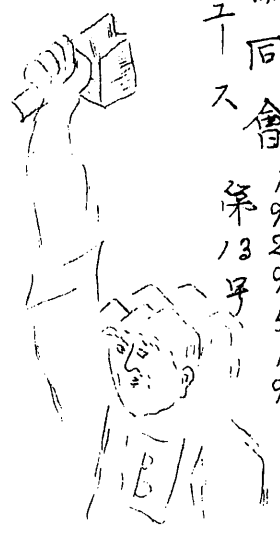 同會 1929 5 19
ュース 第13号